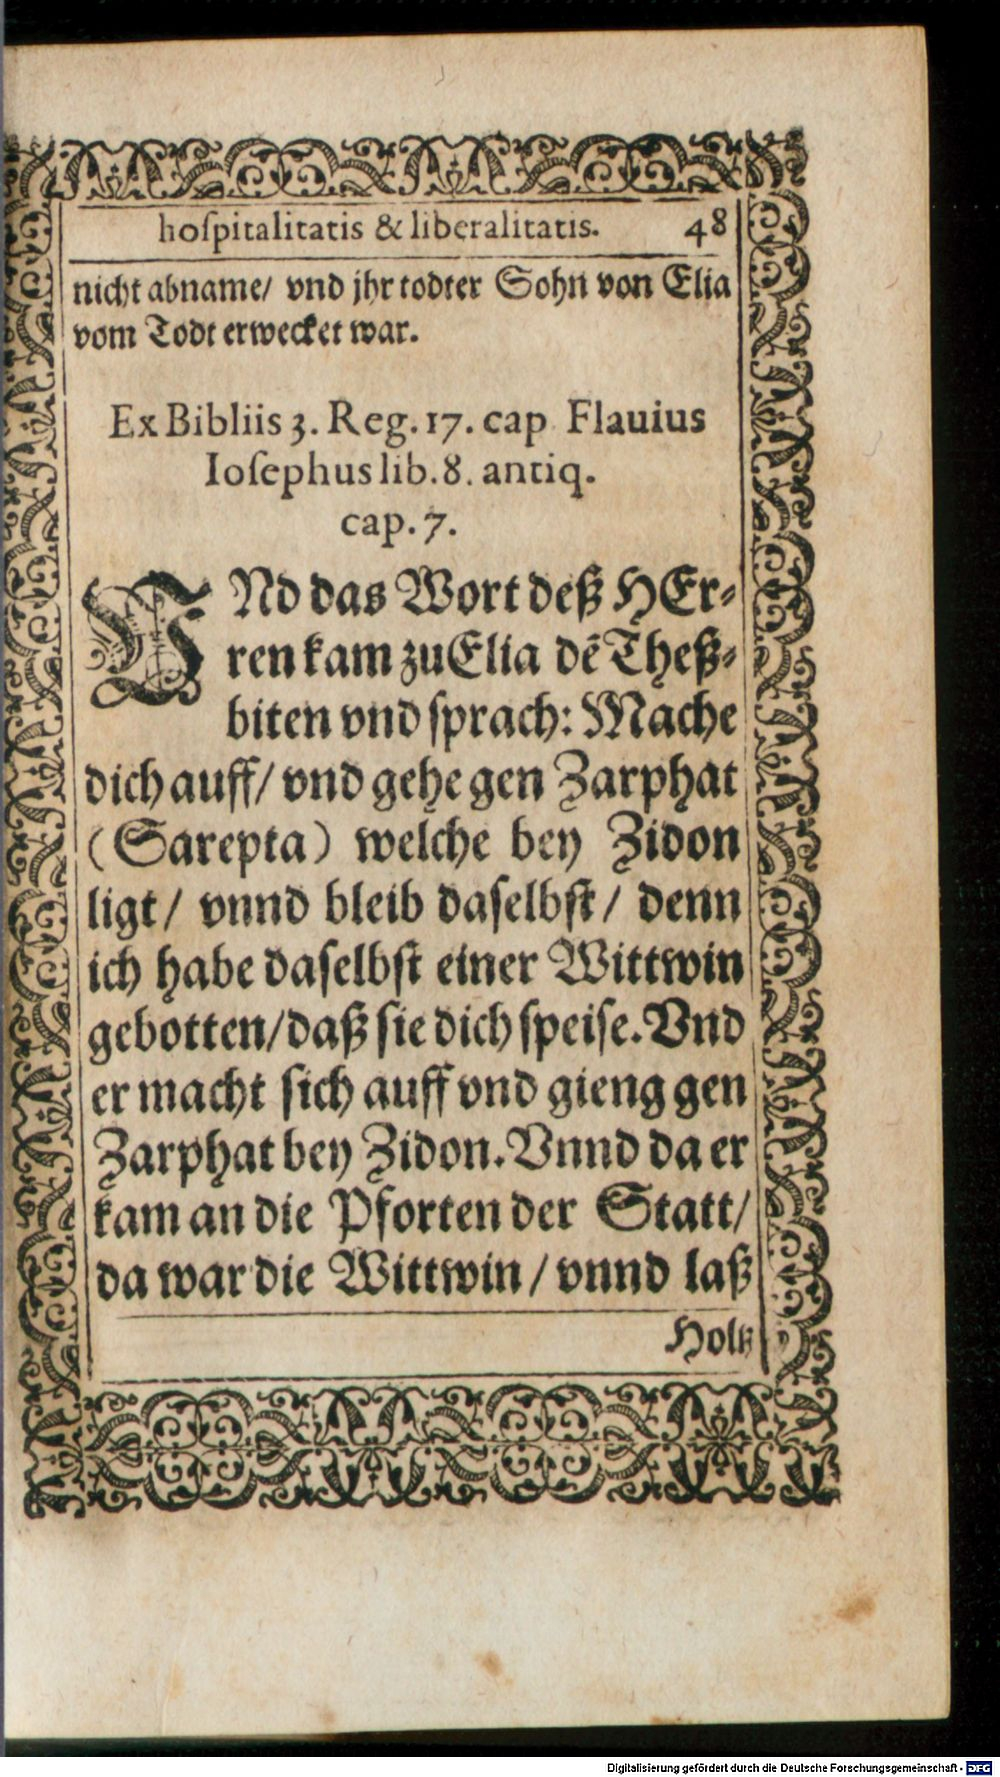 hoſpitalitatis & liberalitatis. 48
nicht abname/ vnd jhr todter Sohn von Elia
vom Todt erwecket war.
Ex Bibliis 3. Reg. 17. cap Flauius
Ioſephus lib. 8. antiq.
cap. 7.
VNd das Wort deß HEr-
ren kam zu Elia dē Theß-
biten vnd ſprach: Mache
dich auff/ vnd gehe gen Zarphat
(Sarepta) welche bey Zidon
ligt/ vnnd bleib daſelbſt/ denn
ich habe daſelbſt einer Wittwin
gebotten/ daß ſie dich ſpeiſe. Vnd
er macht ſich auff vnd gieng gen
Zarphat bey Zidon. Vnnd da er
kam an die Pforten der Statt/
da war die Wittwin/ vnnd laß
Holtz
Digitalisierung gefördert durch die Deutsche Forschungsgemeinschaft - DFG